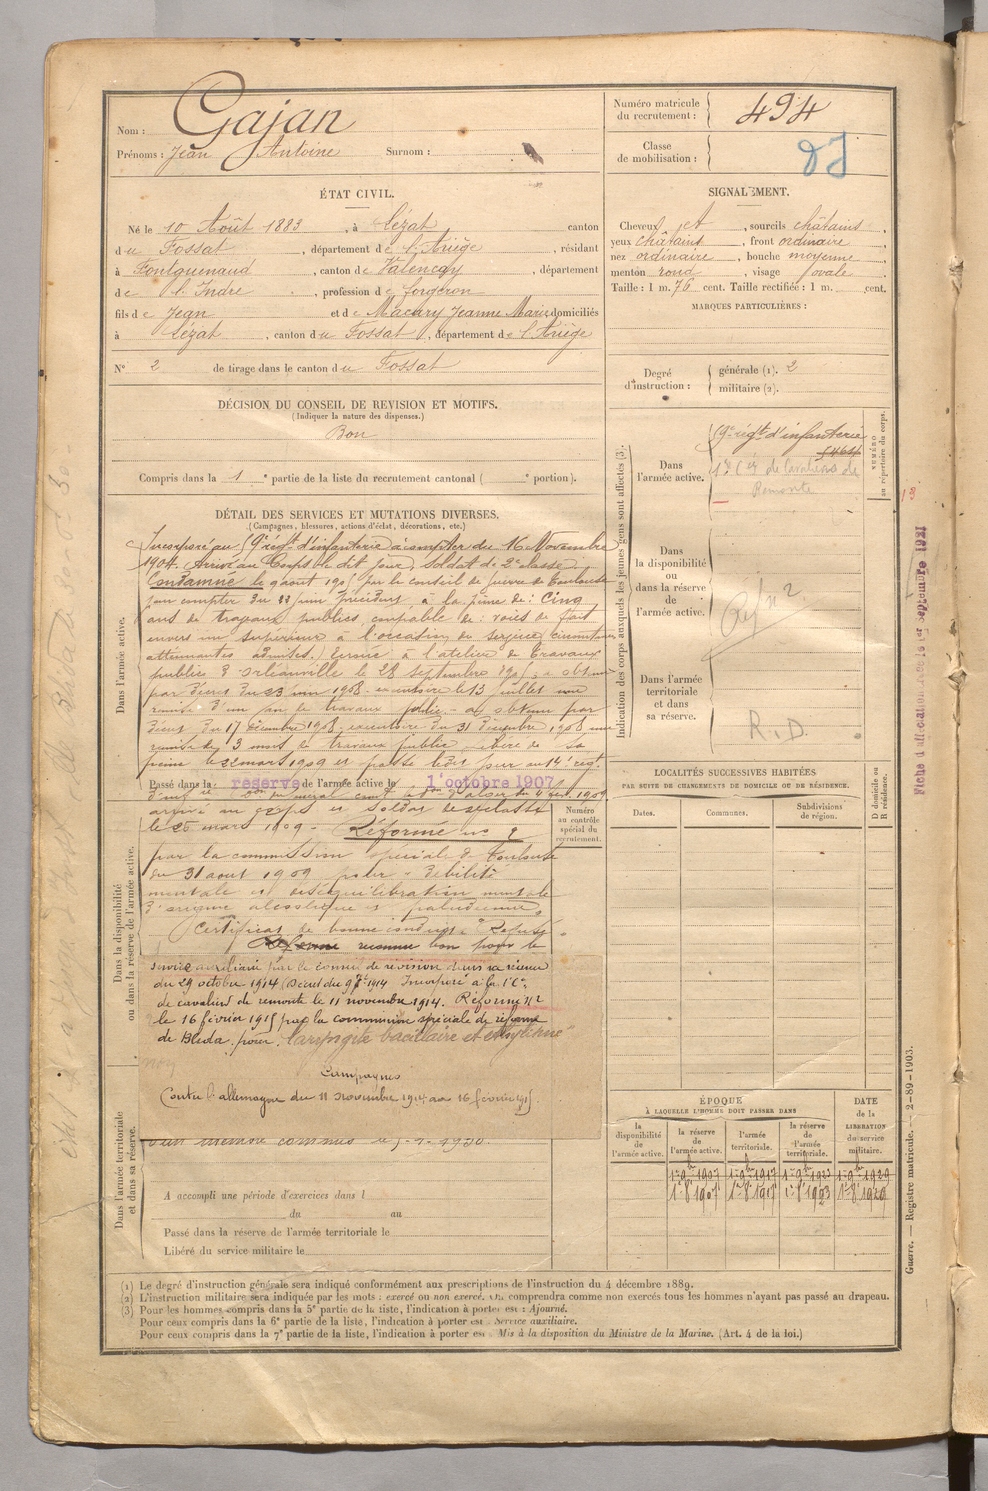 Nom : Gajan
Prénoms : Jean Antoine Surnom :
Numéro matricule du recrutement : 494
Classe de mobilisation :
ÉTAT CIVIL.
Né le 10 Août 1883, à Lézat, canton
du Fossat, département de l'Ariège, résidant
à Fontguenaud, canton de Valençay, département
de l'Indre, profession de forgeron
fils de Jean et de Macary Jeanne Marie, domiciliés
à Lézat, canton du Fossat, département de l'Ariège
N° 2 de tirage dans le canton du Fossat
SIGNALEMENT.
Cheveux et, sourcils châtains,
yeux châtains, front ordinaire,
nez ordinaire, bouche moyenne,
menton rond, visage ovale
Taille : 1 m. 76 cent. Taille rectifiée : 1 m. cent.
MARQUES PARTICULIÈRES :
Degré d'instruction : générale (1). 2
militaire (2).
DÉCISION DU CONSEIL DE REVISION ET MOTIFS.
(Indiquer la nature des dispenses.)
Bon
Compris dans la 1e partie de la liste du recrutement cantonal ( e portion).
DÉTAIL DES SERVICES ET MUTATIONS DIVERSES.
(Campagnes, blessures, actions d'éclat, décorations, etc.)
Dans l'armée active.
Incorporé au 59e régt d'infanterie à compter du 16 Novembre
1904. Arrivé au Corps le dit jour, soldat de 2e classe.
Condamné le 9 août 1905 par le conseil de guerre de Toulouse
pour compter du 23 juin précédent à la peine de : Cinq
ans de travaux publics, coupable de : voies de fait
envers un supérieur à l'occasion du service, circonstances
atténuantes admises. Ecroué à l'atelier de travaux
publics d'Orléansville le 28 septembre 1905, a obtenu
par décret du 23 juin 1908 exécutoire le 13 juillet une
remise d'un an de travaux public - a obtenu par
décret du 17 Décembre 1908, exécutoire du 31 Décembre 1908, une
remise de 3 mois de travaux public. libéré de sa
peine le 22 mars 1909 et passé ledit jour au 14e régt
Passé dans la réserve de l'armée active le 1er octobre 1907
arrivé au corps et soldat de 2e classe
le 25 mars 1909 - Réformé no 2
par la commission spéciale de Toulouse
du 31 aout 1909 pour "débilité
mentale et déséquilibration mentale
d'origine alcoolique et paludéenne"
Certificat de bonne conduite "Refusé"
Réformé reconnu bon pour le
service auxiliaire par le conseil de révision dans sa séance
du 29 octobre 1914 (Décret du 9 7bre 1914. Incorporé à la 1e Cie
de cavaliers de remonte le 11 novembre 1914. Réformé n°2
le 16 février 1915 par la commission spéciale de réforme
de Blida. pour "laryngite bacillaire et éthylisme"
Campagnes
Contre l'allemagne du 11 novembre 1914 au 16 février 1915.
Dans la disponibilité ou dans la réserve de l'armée active.
Numéro au contrôle spécial du recrutement.
Dans l'armée territoriale et dans sa réserve.
A accompli une période d'exercices dans l
du au
Passé dans la réserve de l'armée territoriale le
Libéré du service militaire le
Indication des corps auxquels les jeunes gens sont affectés (3).
NUMÉRO au répertoire du corps.
Dans l'armée active. 59e régt d'infanterie
1e Cie de Cavaliers de
Remonte
Dans la disponibilité ou dans la réserve de l'armée active.
Réf n° 2.
Dans l'armée territoriale et dans sa réserve.
R. D.
LOCALITÉS SUCCESSIVES HABITÉES
PAR SUITE DE CHANGEMENTS DE DOMICILE OU DE RÉSIDENCE.
D domicile ou R résidence.
Dates. Communes. Subdivisions de région.
ÉPOQUE
À LAQUELLE L'HOMME DOIT PASSER DANS
DATE de la LIBÉRATION du service militaire.
la disponibilité de l'armée active. la réserve de l'armée active. l'armée territoriale. la réserve de l'armée territoriale.
Guerre. — Registre matricule. — 2-89-1903.
(1) Le degré d'instruction générale sera indiqué conformément aux prescriptions de l'instruction du 4 décembre 1889.
(2) L'instruction militaire sera indiquée par les mots : exercé ou non exercé. On comprendra comme non exercés tous les hommes n'ayant pas passé au drapeau.
(3) Pour les hommes compris dans la 5e partie de la liste, l'indication à porter est : Ajourné.
Pour ceux compris dans la 6e partie de la liste, l'indication à porter est : Service auxiliaire.
Pour ceux compris dans la 7e partie de la liste, l'indication à porter est : Mis à la disposition du Ministre de la Marine. (Art. 4 de la loi.)